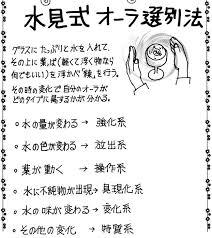 水見式 オーラ選別法
グラスに たっぷりと 水を入れて、
その上に 葉っぱ(軽くて浮く物なら
何でもいい)を 浮かべ "錬" を行う。
その時の変化で 自分のオーラが
どのタイプに属するかが 分かる。
・水の量が変わる → 強化系
・水の色が変わる → 放出系
・葉が動く → 操作系
・水に不純物が出現 → 具現化系
・水の味が変わる → 変化系
・その他の変化 → 特質系